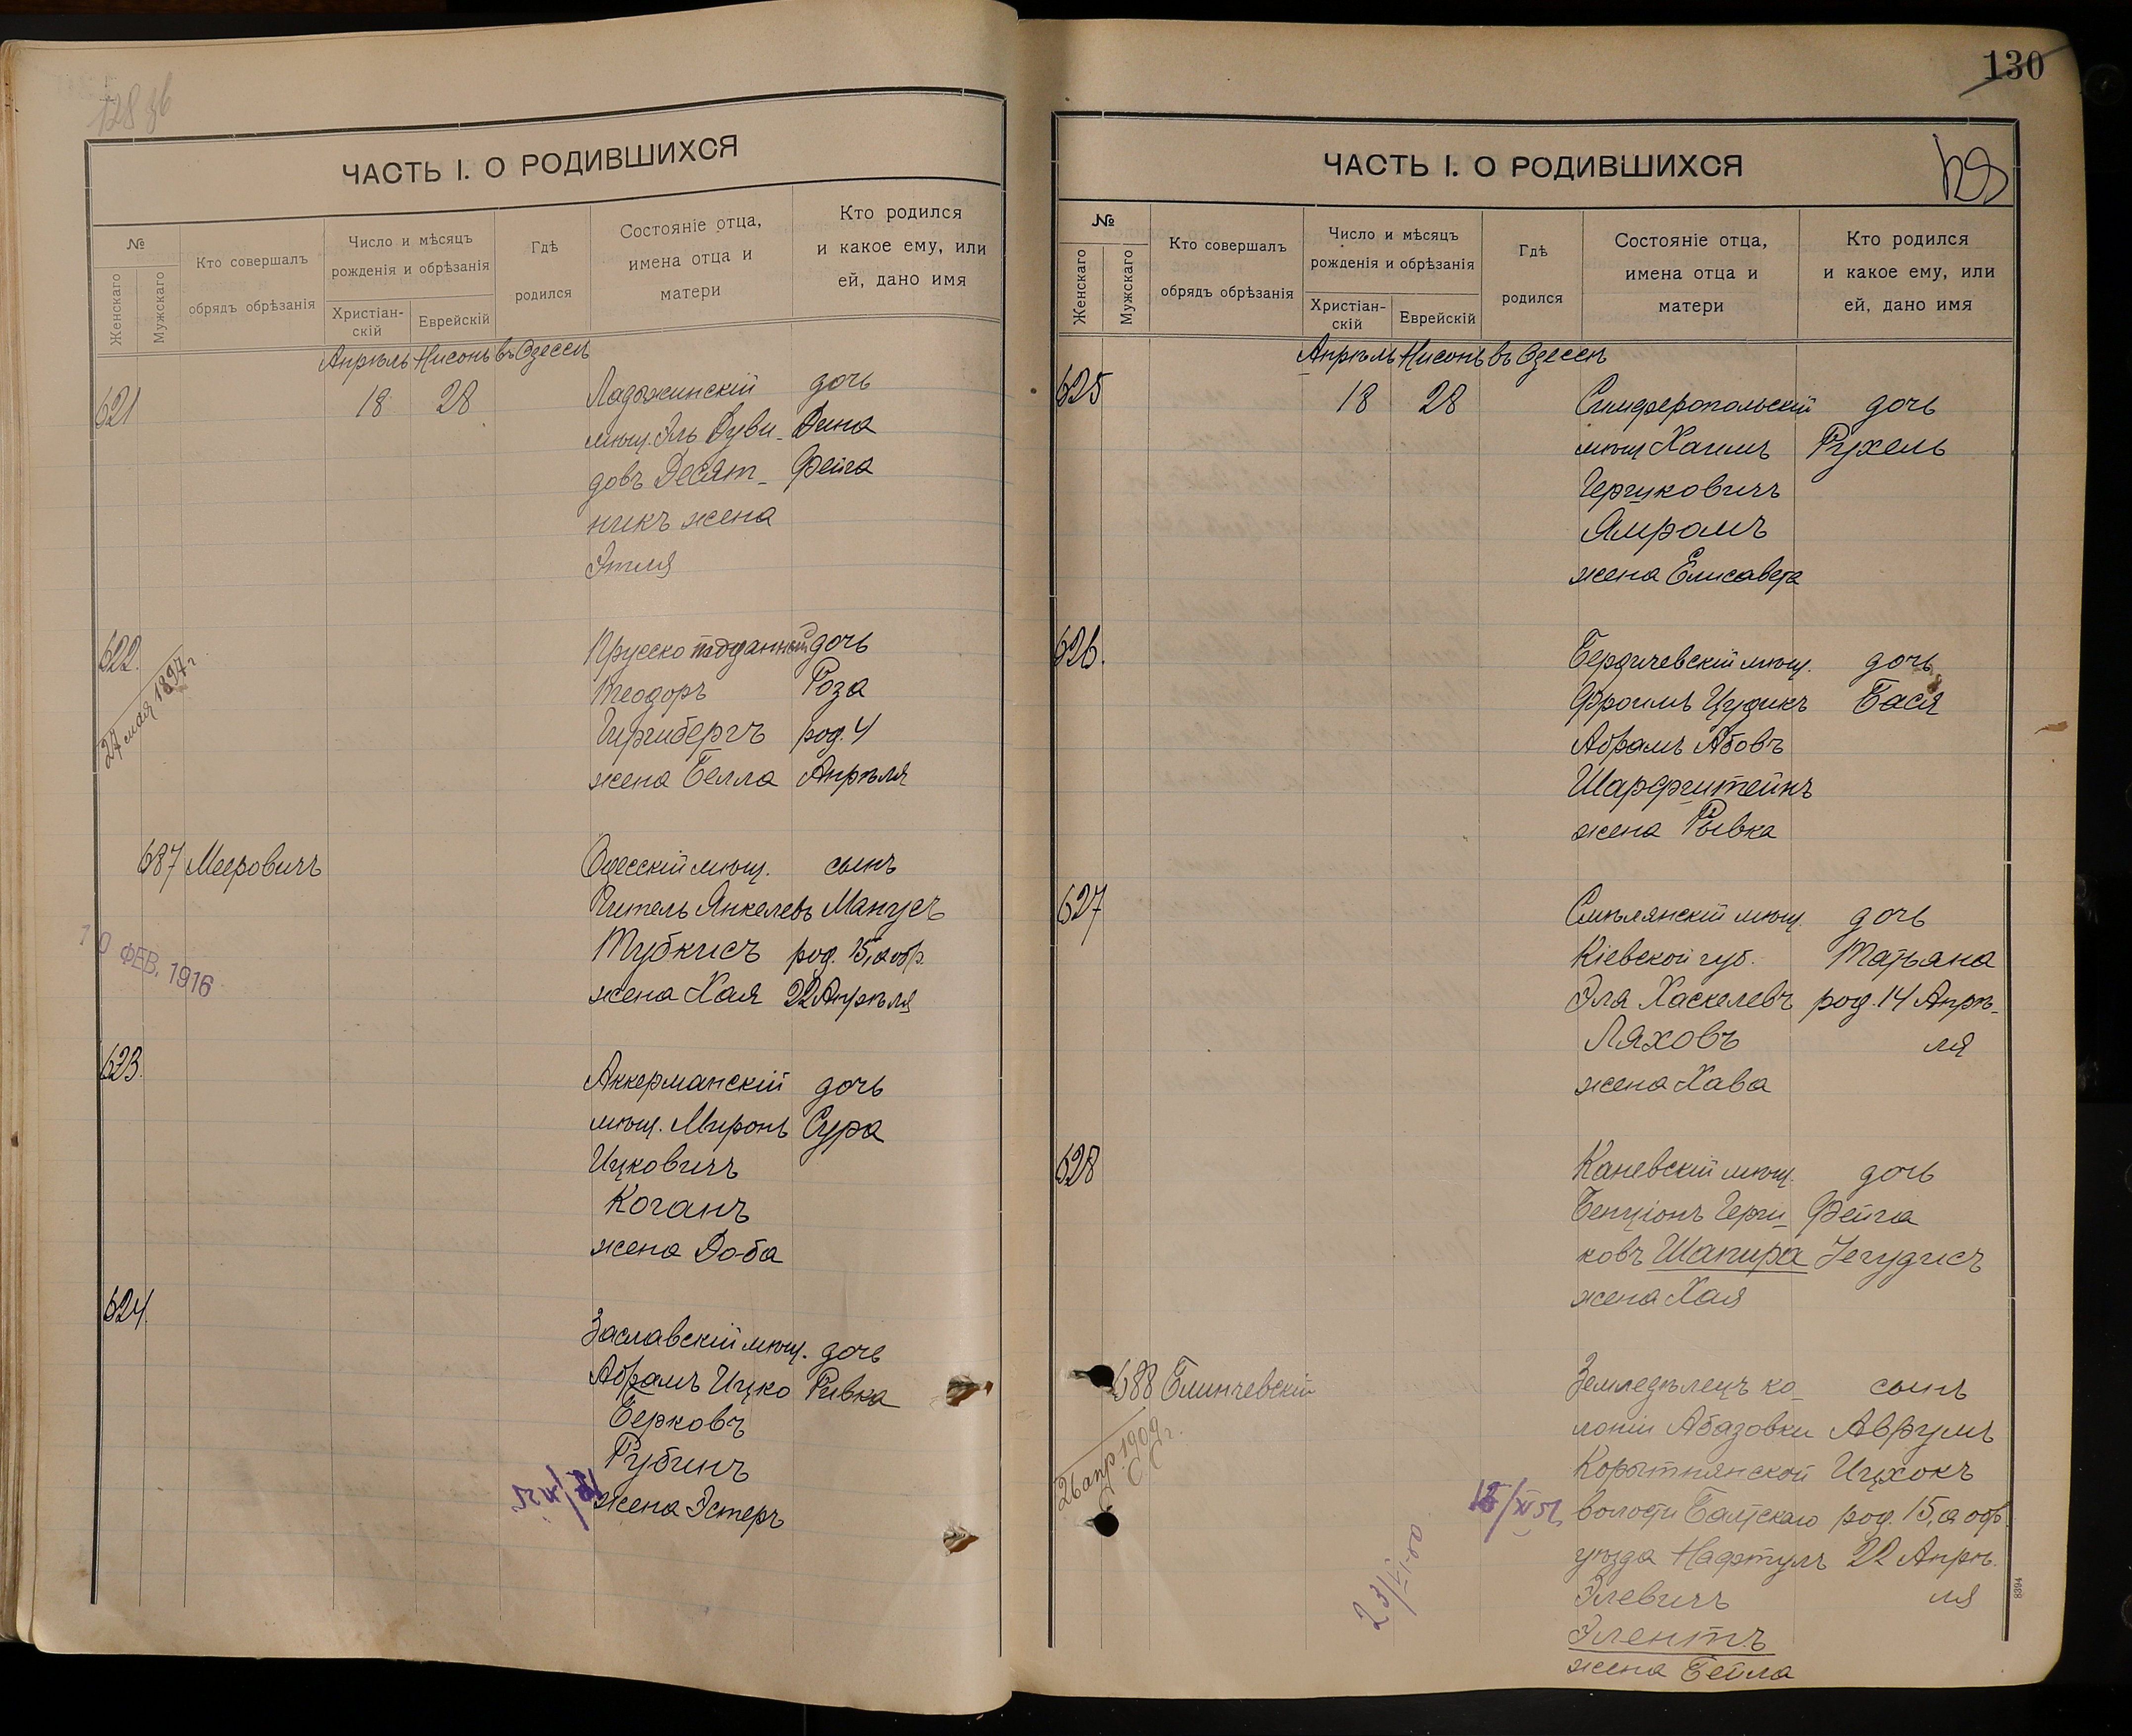 ЧАСТЬ I. О РОДИВШИХСЯ
№
Женскаго
Мужскаго
Кто совершалъ
обрядъ обрѣзанія
Число и мѣсяцъ
рожденія и обрѣзанія
Христіан-
скій
Еврейскій
Гдѣ
родился
Состояніе отца,
имена отца и
матери
Кто родился
и какое ему, или
ей, дано имя
Апрѣль Нисонь въ Одессѣ
621 18 28 Ладыжинскій дочь
мѣщ. Эль Дуви- Дина
довъ Десят- Фейга
никъ жена
Этля
622. Прусско подданный дочь
27 мая 1897 г.
Теодоръ Роза
Гиршбергъ род. 4
жена Белла Апрѣля
687 Мееровичъ Одесскій мѣщ. сынъ
Хитель Янкелевъ Манусъ
Тубкисъ род. 15, а обр.
жена Хая 22 Апрѣля
10 ФЕВ. 1916
623. Аккерманскій дочь
мѣщ. Миронъ Сура
Ицковичъ
Коганъ
жена Доба
624. Заславскій мѣщ. дочь
Абрамъ Ицко Ривка
Берковъ
Рубинъ
жена Эстеръ
130
ЧАСТЬ I. О РОДИВШИХСЯ
№
Женскаго
Мужскаго
Кто совершалъ
обрядъ обрѣзанія
Число и мѣсяцъ
рожденія и обрѣзанія
Христіан-
скій
Еврейскій
Гдѣ
родился
Состояніе отца,
имена отца и
матери
Кто родился
и какое ему, или
ей, дано имя
Апрѣль Нисонь въ Одессѣ
625 18 28 Симферопольскій дочь
мѣщ Хаимъ Рухель
Гершковичъ
Ямромъ
жена Елисавета
626. Бердичевскій мѣщ. дочь
Фроимъ Цудикъ Бася
Абрамъ Абовъ
Шарфштейнъ
жена Рывка
627 Смѣлянскій мѣщ. дочь
Кіевской губ. Татьяна
Эля Хаскелевъ род. 14 Апрѣ-
Ляховъ ля
жена Хава
628 Каневскій мѣщ. дочь
Бенціонъ Герш- Фейга
ковъ Шапира Іегудисъ
жена Хая
688 Блинчевскій Земледѣлецъ ко- сынъ
лоніи Абазовки Аврумъ
26 апр. 1909 г.
Корытнянской Ицхокъ
волости Балтскаго род. 15, а обр.
уѣзда Нафтулъ 22 Апрѣ-
Элевичъ ля
Элентъ
жена Бейла
8394